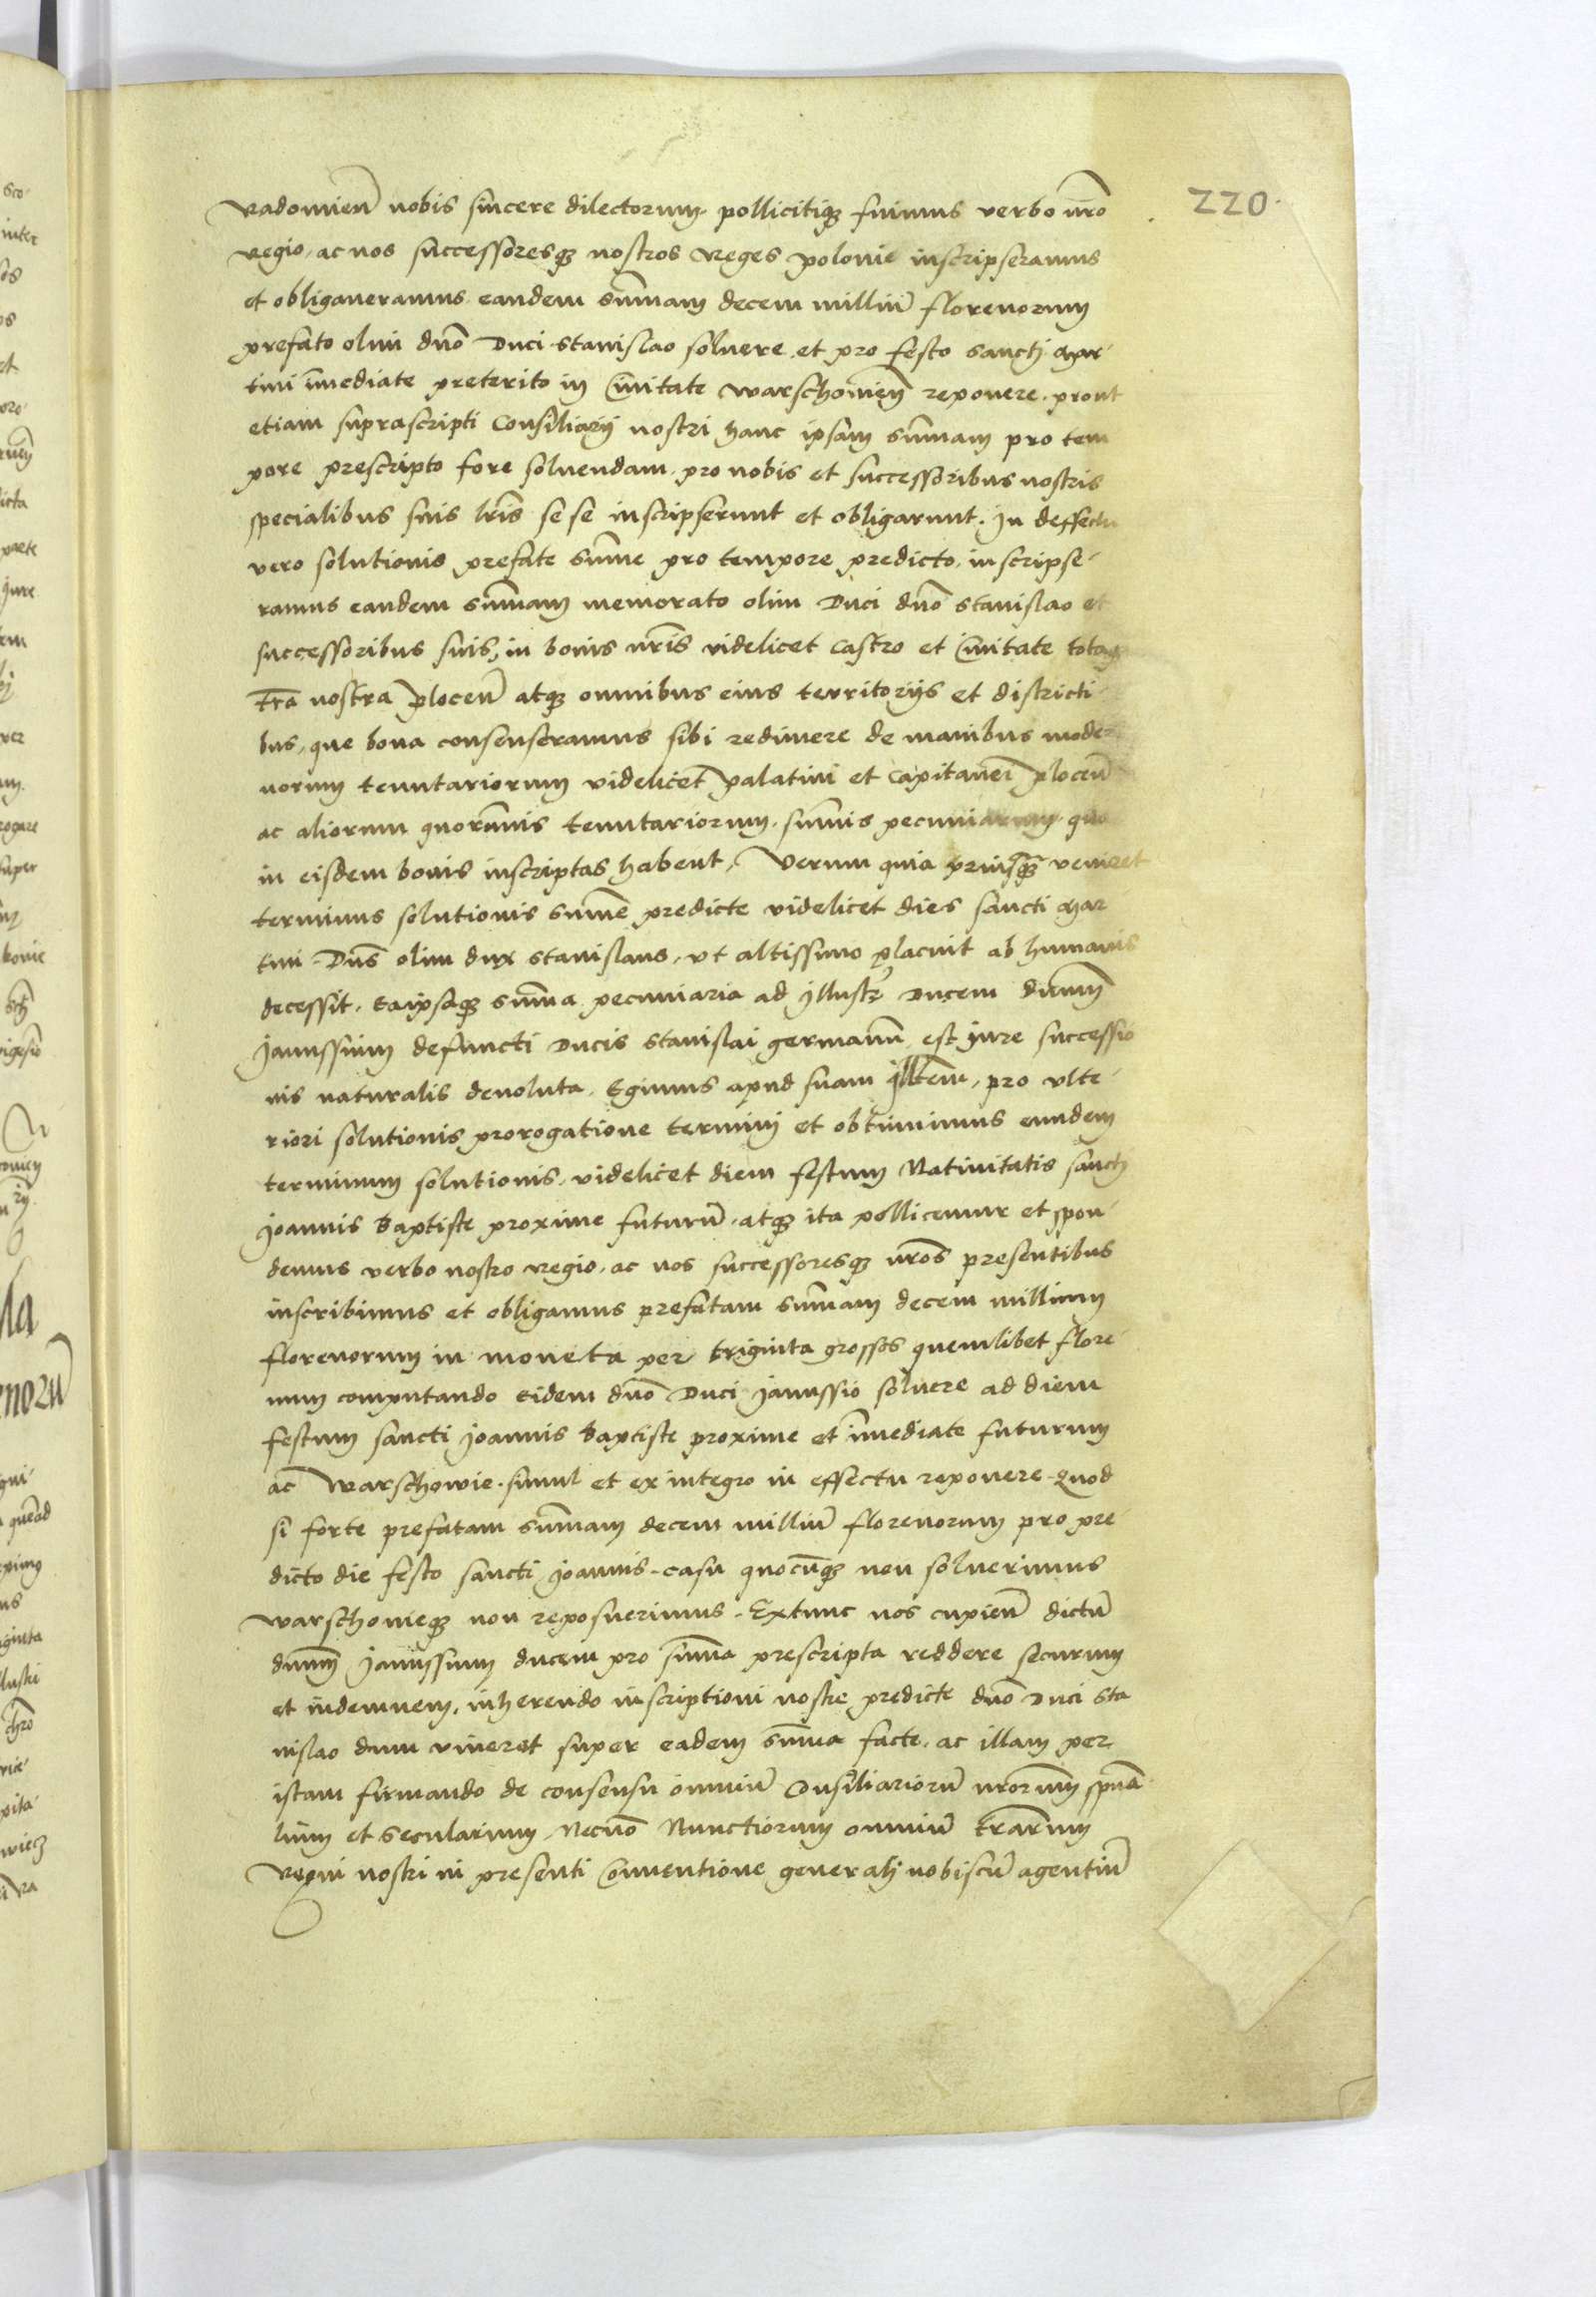 220.
Radomien̄ nobis sincere dilectorum. pollicitiq₃ fuimus verbo nr̄o
Regio, ac nos successoresq₃ nostros Reges polonie inscripseramus
et obligaueramus eandem sum̄am decem milliū florenorum
prefato olim dn̄o Duci Stanislao soluere, et pro festo sancti Mar
tini im̄ediate preterito in Ciuitate Warschouien̄ reponere. prout
etiam suprascripti Consiliarij nostri hanc ipsam sum̄am pro tem
pore prescripto fore soluendam. pro nobis et successoribus nostris
specialibus suis lr̄is sese inscripserunt et obligarunt. In deffectu
vero solutionis prefate sum̄e pro tempore predicto, inscripse-
ramus eandem sum̄am memorato olim Duci dn̄o Stanislao et
successoribus suis, in bonis nr̄is videlicet Castro et Ciuitate totaq₃
tr̄a nostra plocen̄ atq₃ omnibus eius territorijs et districti-
bus, que bona consenseramus sibi redimere de manibus moder
norum tenutariorum videlicet palatini et Capitanei plocen̄
ac aliorum quorumuis tenutariorum. sum̄is pecuniarum. quas
in eisdem bonis inscriptas habent, Verum quia priusq₃ veniret
terminus solutionis sum̄e predicte videlicet dies sancti Mar
tini. Dn̄s olim dux Stanislaus, vt altissimo placuit ab humanis
decessit. Eaipsaq₃ sum̄a pecuniaria ad Illustr̄ Ducem dn̄um
Janussium defuncti Ducis Stanislai germanū est jure successio
nis naturalis deuoluta. Egimus apud suam Illtem̄, pro vlte-
riori solutionis prorogatione termini et obtinuimus eundem
terminum solutionis, videlicet diem festum Natiuitatis sancti
Joannis Baptiste proxime futurū. atq₃ ita pollicemur et spon-
demus verbo nostro Regio, ac nos successoresq₃ nr̄os presentibus
inscribimus et obligamus prefatam sum̄am decem millium
florenorum in moneta per triginta grossos quemlibet flore-
num computando Eidem dn̄o Duci Janussio soluere ad diem
festum sancti Joannis Baptiste proxime et im̄ediate futurum
ac Warschowie. simul et ex integro in effectu reponere. Quod
si forte prefatam sum̄am decem milliū florenorum pro pre-
dicto die festo sancti Joannis. casu quocūq₃ non soluerimus
Warschowieq₃ non reposuerimus. Extunc nos cupien̄ dictū
dn̄um Janussium ducem pro sum̄a prescripta reddere securum
et indemnem. inherendo inscriptioni nostre predicte dn̄o Duci Sta
nislao dum viueret super eadem sum̄a facte. ac illam per
istam firmando de consensu omniū Consiliariorū nr̄orum spūa
lium et secularium. Necnō Nunctiorum omniū tr̄arum
Regni nostri in presenti Conuentione generali nobiscū agentiū